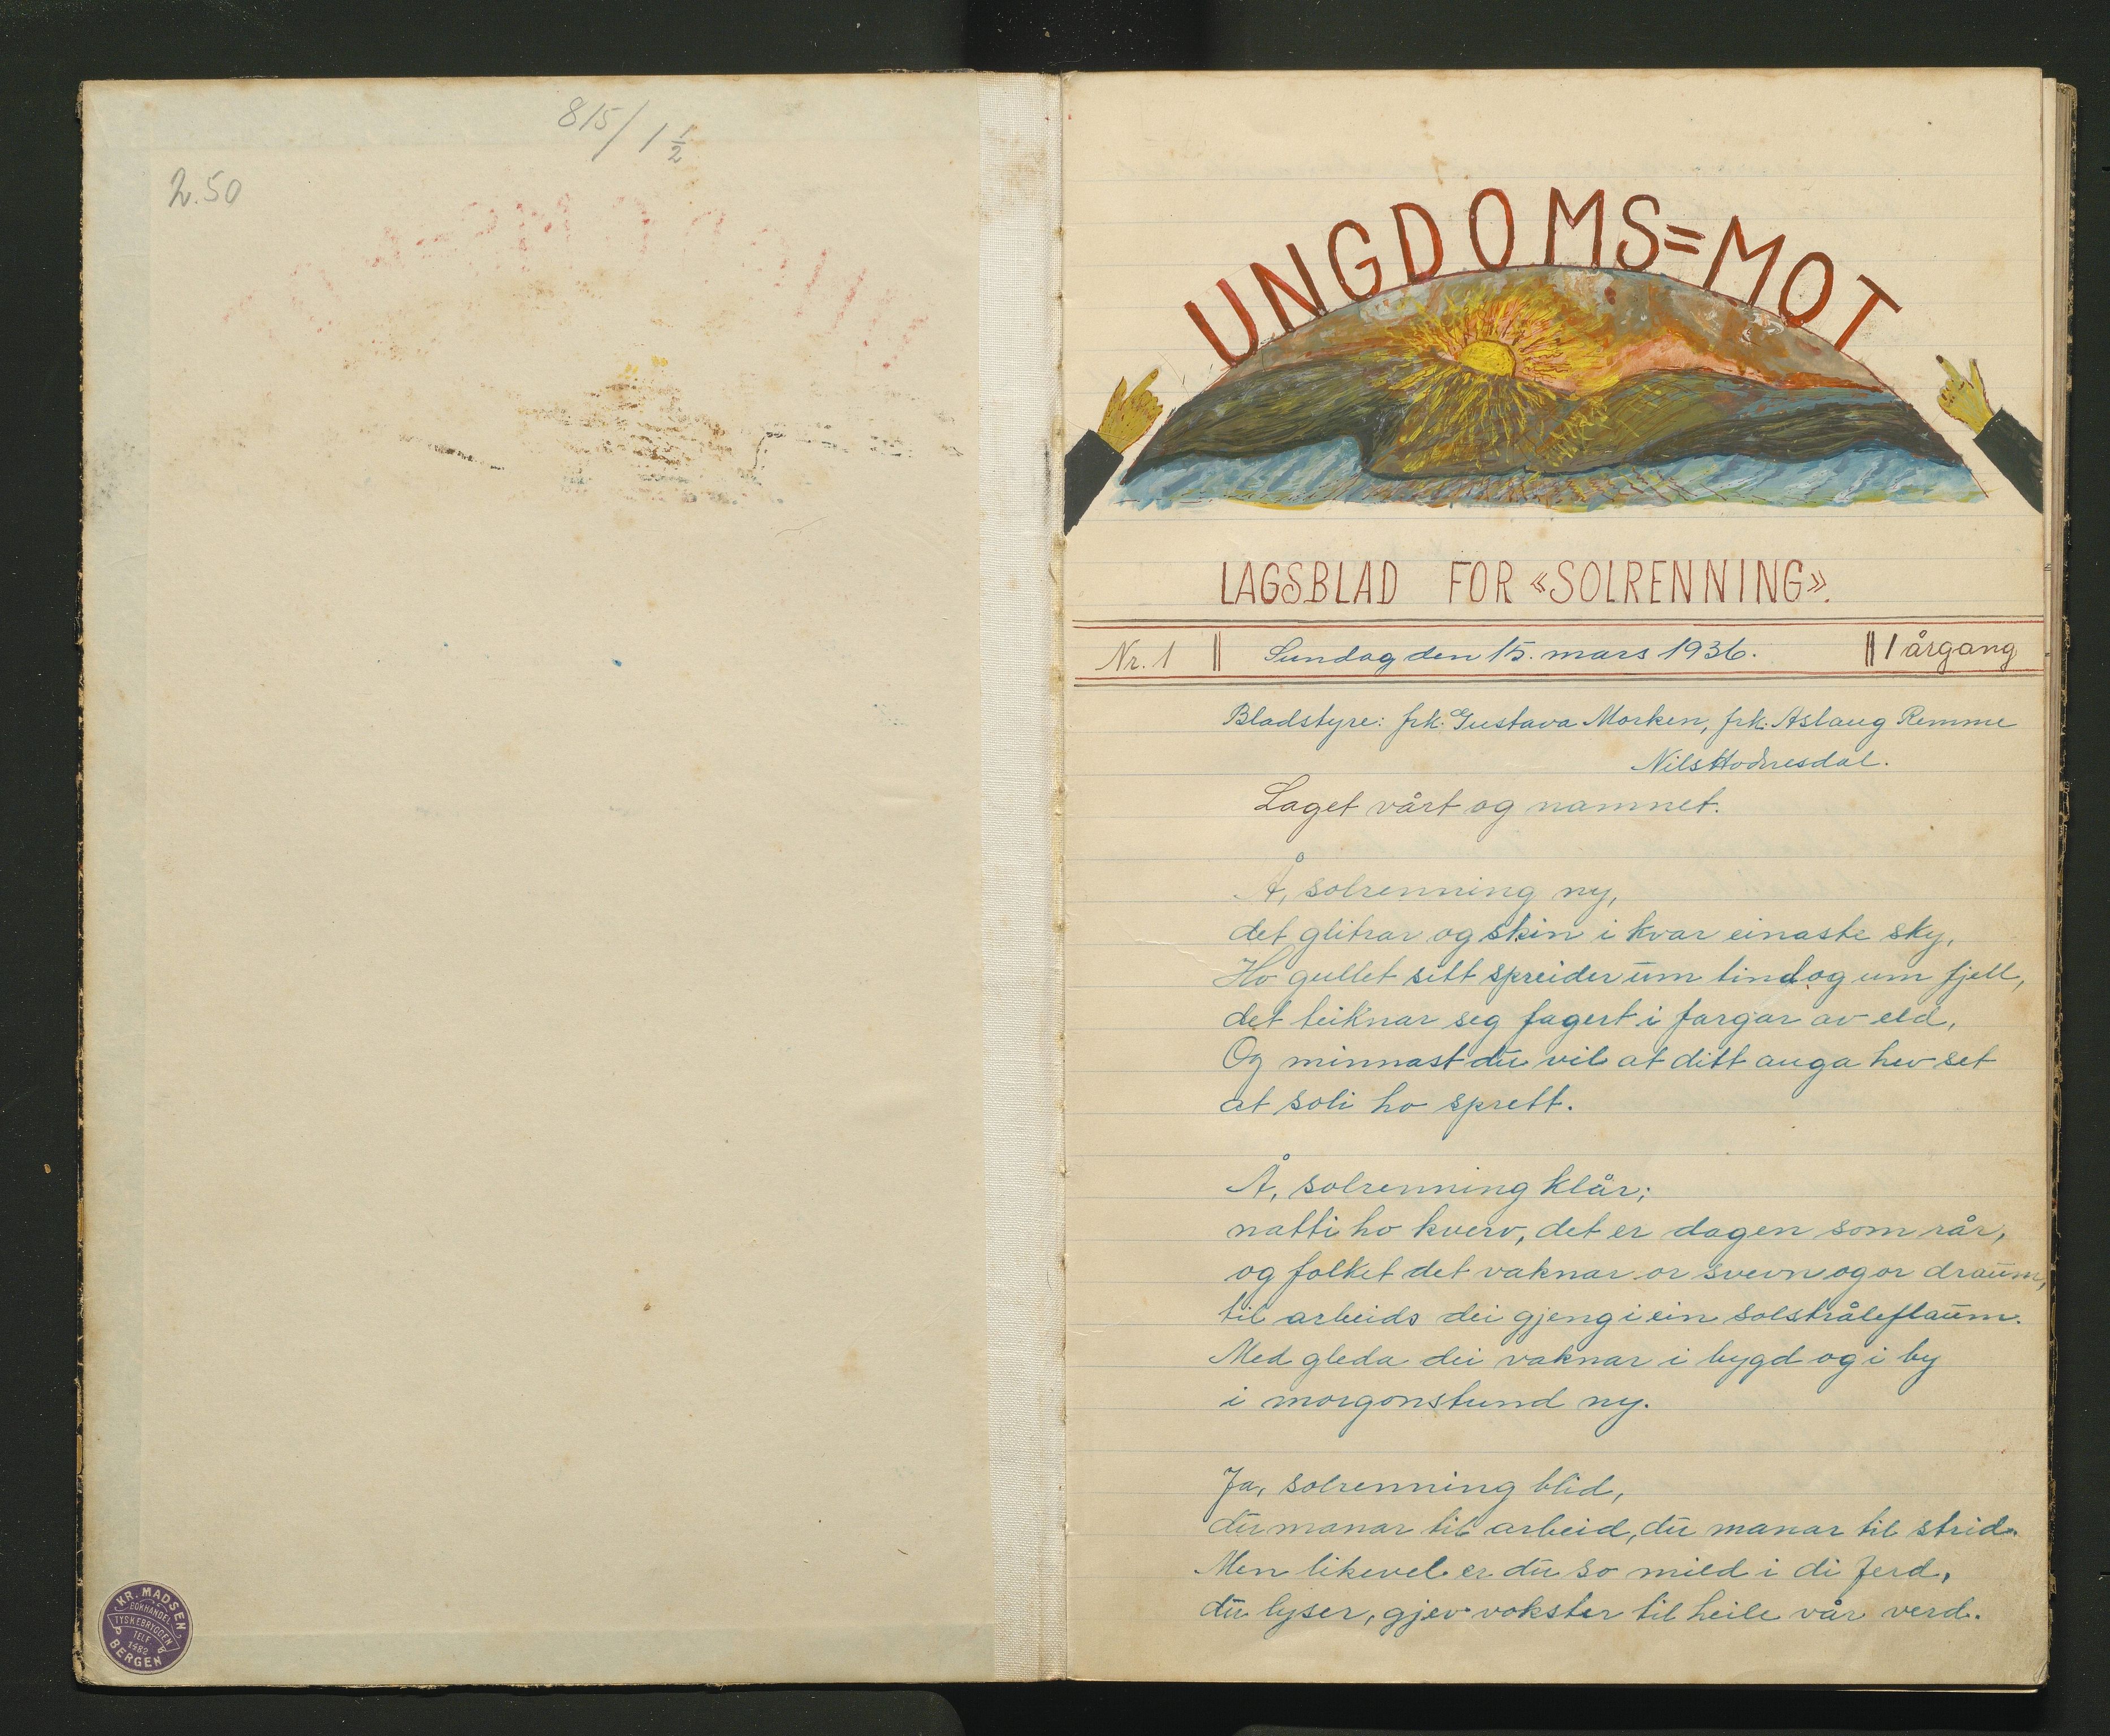 815/1 1/2
2.50
KR. MADSEN
BOKHANDEL
TYSKEBRYGGEN
TELF.
1482
BERGEN
UNGDOMS=MOT
LAGSBLAD FOR «SOLRENNING».
Nr. 1 || Sundag den 15. mars 1936. || 1 årgang
Bladstyre: frk. Gustava Morken, frk. Aslaug Remme
Nils Hodnesdal.
Laget vårt og namnet.
Å, solrenning ny,
det glitrar og skin i kvar einaste sky,
Ho gullet sitt spreider um tind og um fjell,
det teiknar seg fagert i fargar av eld,
Og minnast du vil at ditt auga hev set
at soli ho sprett.
Å, solrenning klår;
natti ho kverv, det er dagen som rår,
og folket det vaknar or svevn og or draum,
til arbeids dei gjeng i ein solstråleflaum.
Med gleda dei vaknar i bygd og i by
i morgonstund ny.
Ja, solrenning blid,
du manar til arbeid, du manar til strid.
Men likevel er du so mild i di ferd,
du lyser, gjev vokster til heile vår verd.